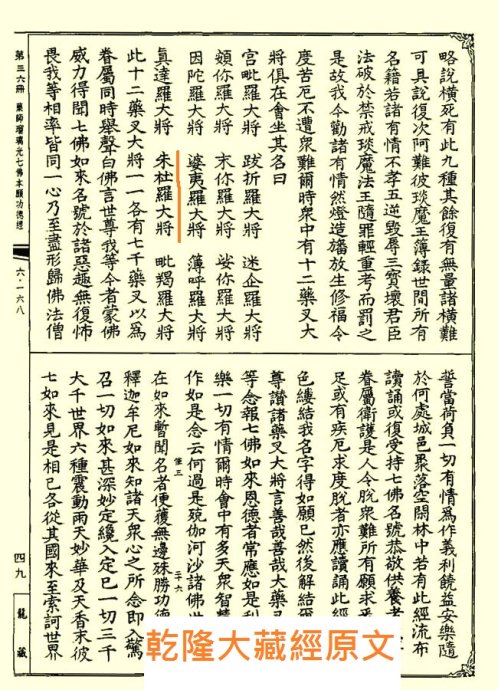 略說橫死有此九種其餘復有無量諸橫難
可具說復次阿難彼琰魔王簿錄世間所有
名籍若諸有情不孝五逆毀辱三寶壞君臣
法破於禁戒琰魔法王隨罪輕重考而罰之
是故我今勸諸有情然燈造旛放生修福令
度苦厄不遭眾難爾時眾中有十二藥叉大
將俱在會坐其名曰
宮毗羅大將 跋折羅大將 迷企羅大將
頞你羅大將 末你羅大將 娑你羅大將
因陀羅大將 婆夷羅大將 薄呼羅大將
真達羅大將 朱杜羅大將 毗羯羅大將
此十二藥叉大將一一各有七千藥叉以為
眷屬同時舉聲白佛言世尊我等今者蒙佛
威力得聞七佛如來名號於諸惡趣無復怖
畏我等相率皆同一心乃至盡形歸佛法僧
第三六冊 藥師瑠璃光七佛本願功德經
六·一六八
誓當荷負一切有情為作義利饒益安樂隨
於何處城邑聚落空閑林中若有此經流布
讀誦或復受持七佛名號恭敬供養者
眷屬衛護是人令脫眾難所有願求悉
足或有疾厄求度脫者亦應讀誦此經
色縷結我名字得如願已然後解結爾
尊讚諸藥叉大將言善哉善哉大藥
等念報七佛如來恩德者常應如是利
樂一切有情爾時會中有多天眾智慧
作如是念云何過是殑伽河沙諸佛世
在如來暫聞名者便獲無邊殊勝功德
釋迦牟尼如來知諸天眾心之所念即入驚
召一切如來甚深妙定纔入定已一切三千
大千世界六種震動雨天妙華及天香末彼
七如來見是相已各從其國來至索訶世界
四九
龍藏
乾隆大藏經原文